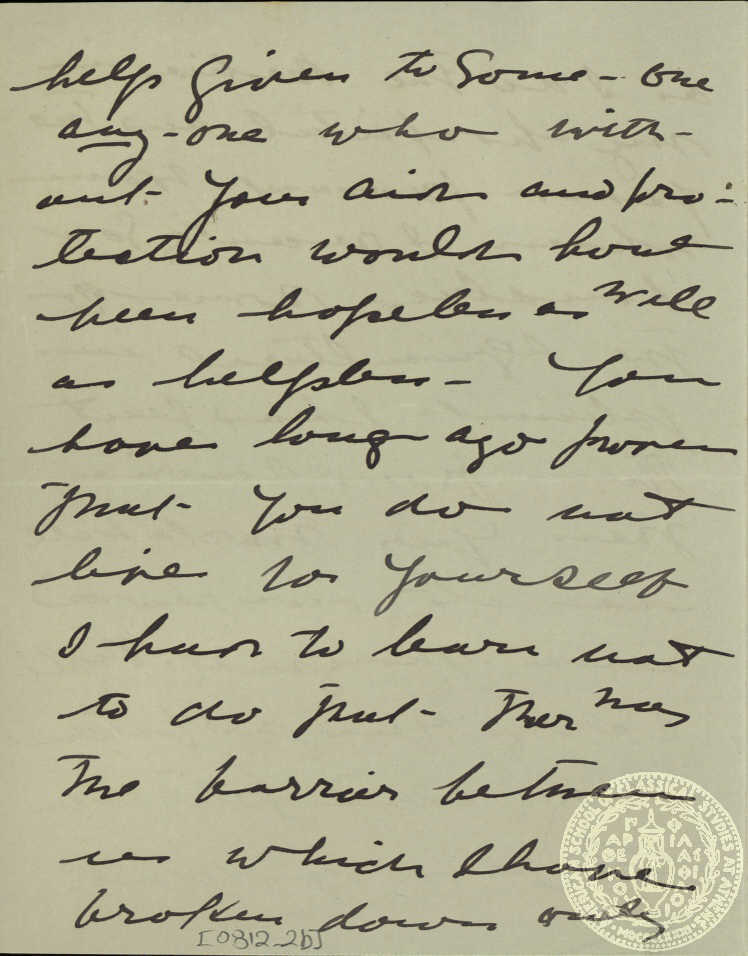 help given to some-one
any-one who with-
out your aid and pro-
tection would have
been hopeless as well
as helpless - You
have long ago proven
that you do not
live to yourself
I had to learn not
to do that - There was
the barrier between
us which I have
broken down only
[0812_2b]